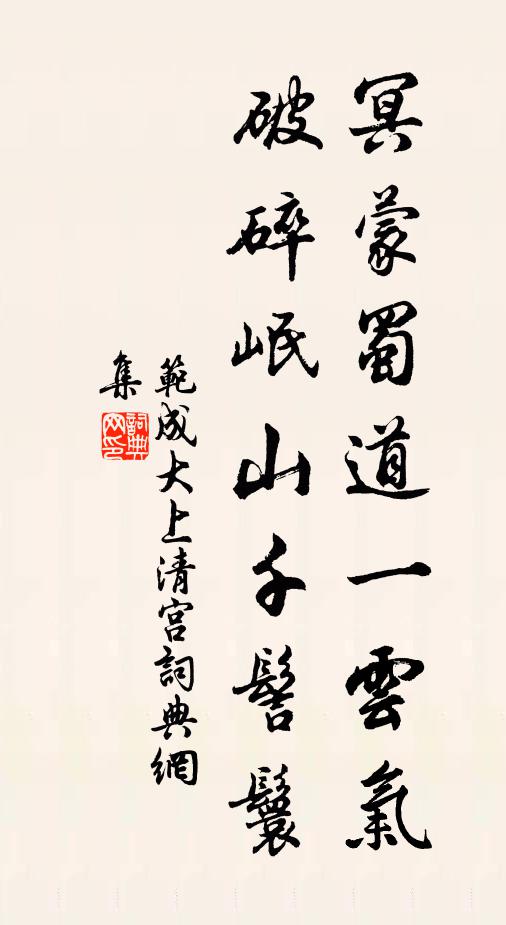 冥蒙蜀道一雲氣
破碎岷山千髻鬟
範成大上清宮詞典網
集
詞典网印